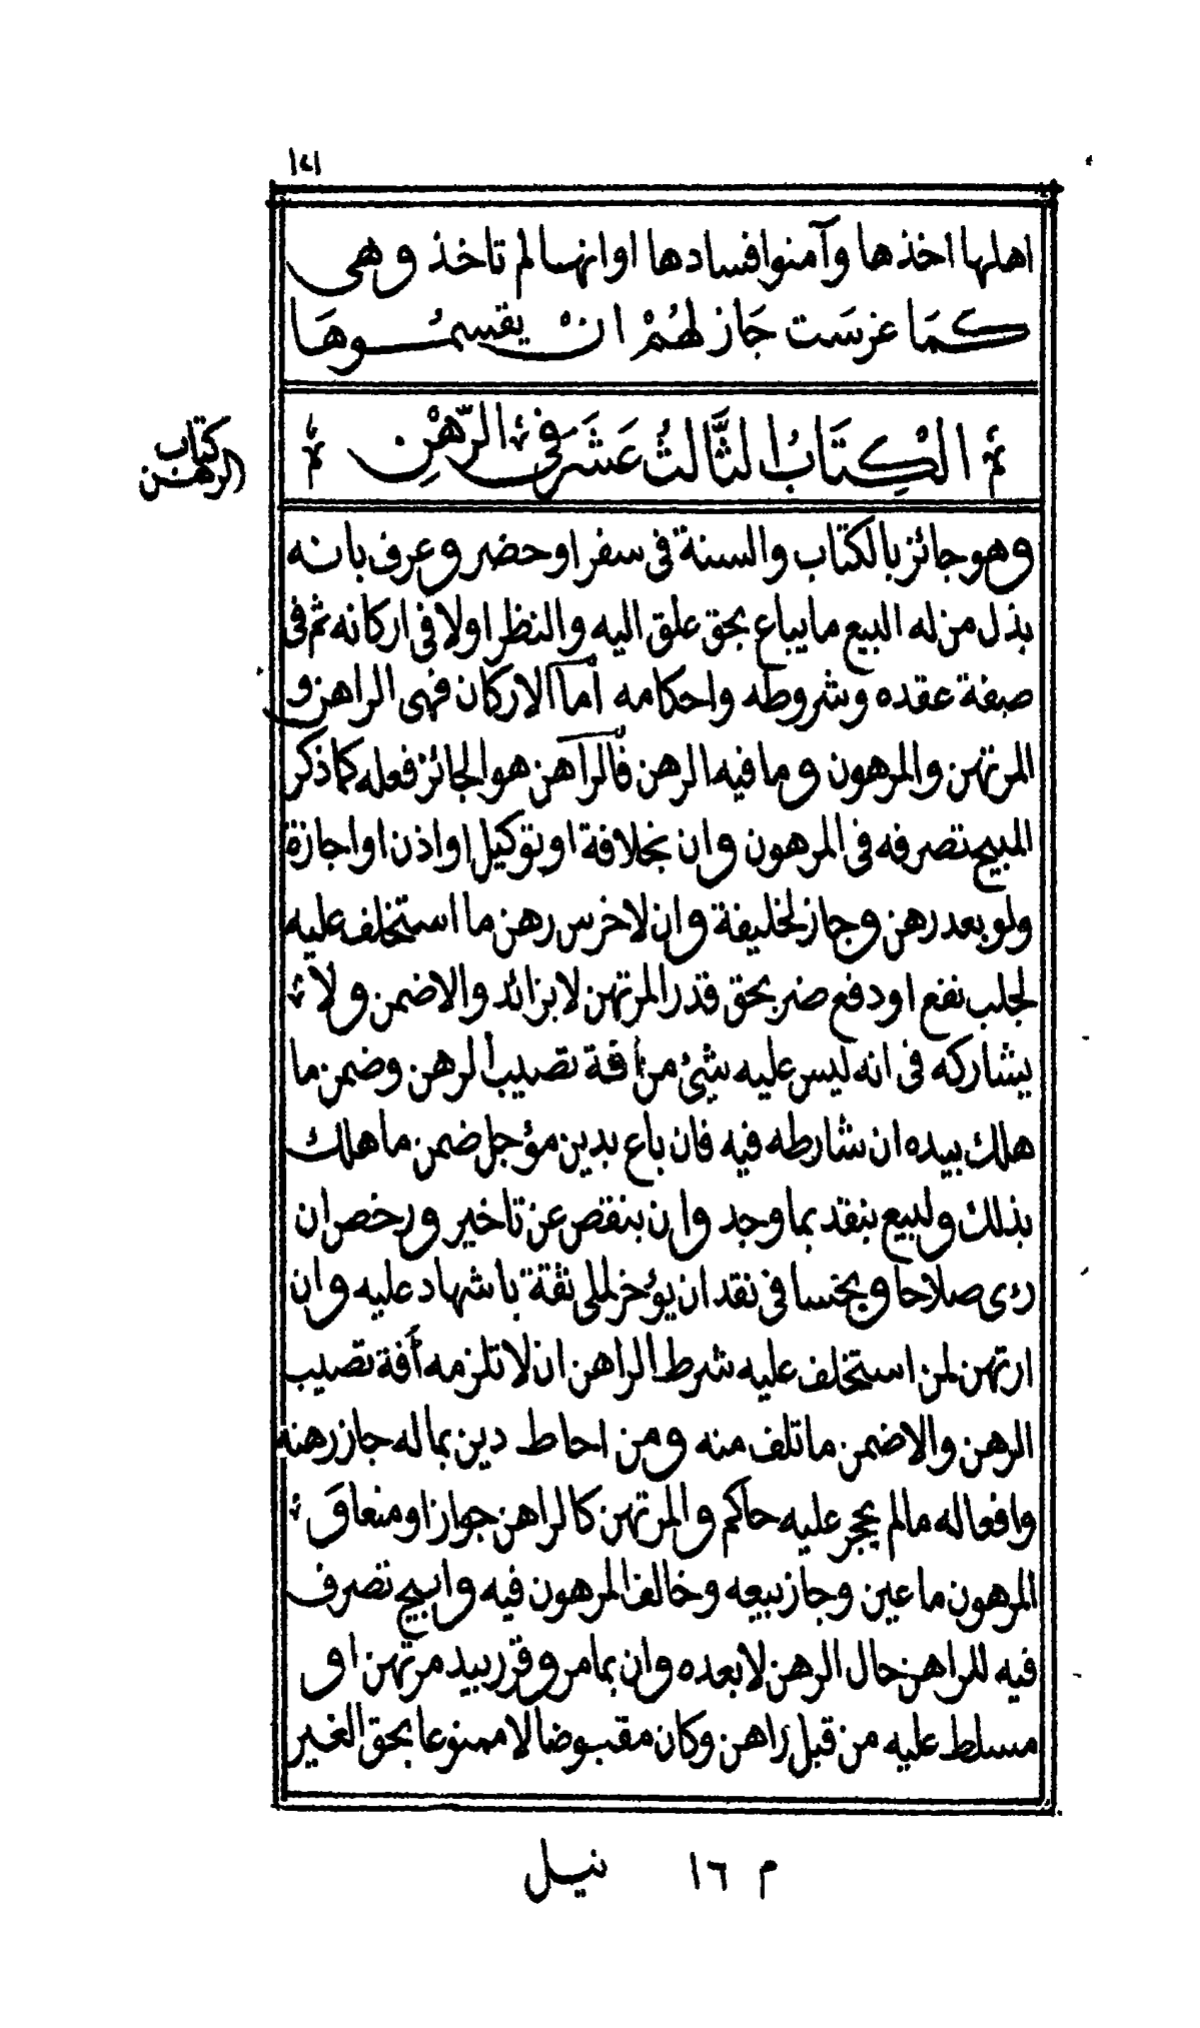 ١٢١
اهلها اخذها وآمنوا فسادها او انها لم تاخذ وهى
كمَا غرسَت جَاز لهُمْ انْ يقسمُوهَا
الكِتَابُ الثَّالثُ عَشَر فى الرّهْنِ
كتاب
الرهن
وهو جائز بالكتاب والسنة فى سفر او حضر وعرف بانه
بذل من له البيع ما يباع بحق علق اليه والنظر اولا فى اركانه ثم فى
صفة عقده وشروطه واحكامه أما الاركان فهى الراهن و
المرتهن والمرهون وما فيه الرهن فالراهن هو الجائز فعله كما ذكر
المبيح تصرفه فى المرهون وان بخلافة او توكيل او اذن او اجازة
ولو بعد رهن وجاز لخليفة وان لاخرس رهن ما استخلف عليه
لجلب نفع او دفع ضر بحق قدر المرتهن لا بزائد والا ضمن ولا
يشاركه فى انه ليس عليه شئ من آفة تصيب الرهن وضمن ما
هلك بيده ان شارطه فيه فان باع بدين مؤجل ضمن ما هلك
بذلك ولبيع بنقد بما وجد وان بنقص عن تاخير ورخص ان
رءى صلاحا وبخسا فى نقد ان يؤخر لملى ثقة باشهاد عليه وان
ارتهن لمن استخلف عليه شرط الراهن ان لا تلزمه أفة تصيب
الرهن والا ضمن ما تلف منه ومن احاط دين بماله جاز رهنه
وافعاله ما لم يحجر عليه حاكم والمرتهن كالراهن جوازا ومنعا وَ
المرهون ما عين وجاز بيعه وخالف المرهون فيه وابيح تصرف
فيه للراهن حال الرهن لا بعده وان بما مر وقر بيد مرتهن او
مسلط عليه من قبل رَاهن وكان مقبوضا لا ممنوعا بحق الغير
م ١٦ نيل